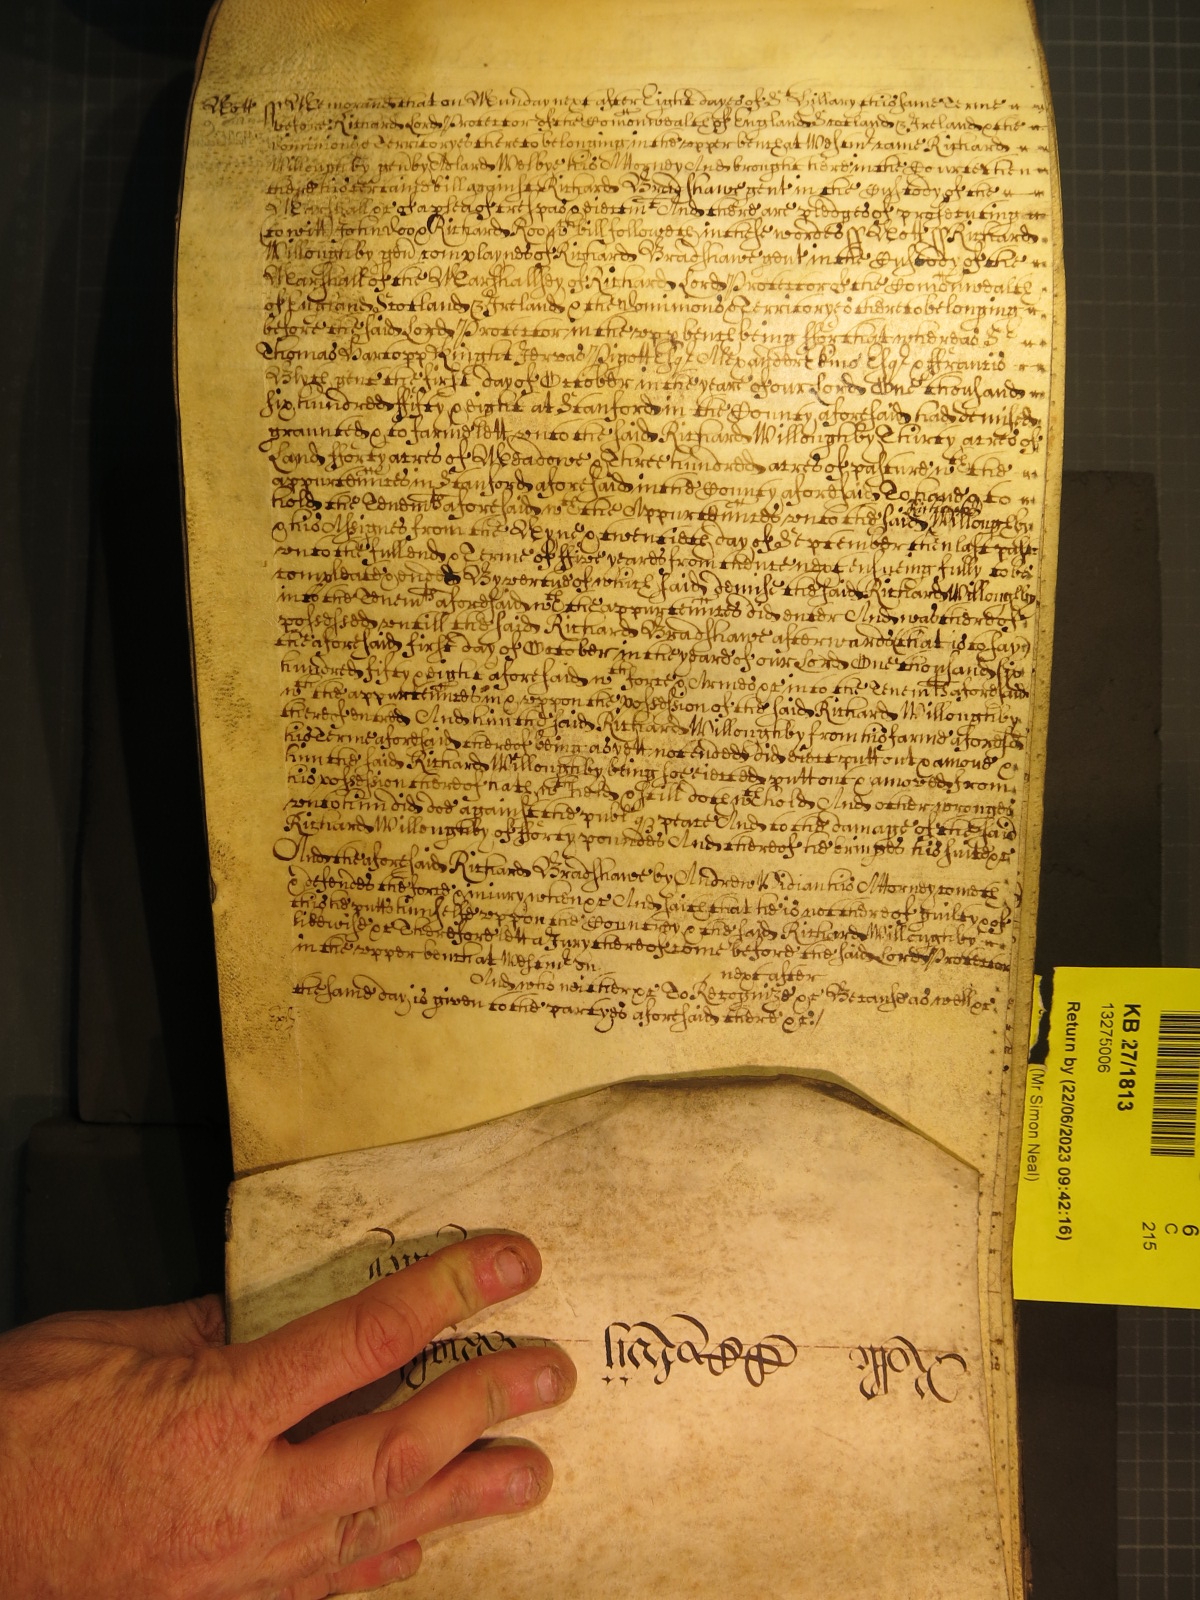 Nott ss Memorand that on Munday next after Eight dayes of St Hillary this same Terme
before Richard Lord Protector of the Comonwealth of England Scotland & Ireland & the
Dominions & Territoryes thereto belonging in the upper bench at Westm came Richard
Willoughby gen by Welbye his Attorney And brought here in the Court then
there his certaine bill against Richard Bradshawe gent in the Custody of the
Marshall &c of a plea of trespas & eiectmt And there are pledges of prosecuting
to witt John Doo & Richard Roo wch bill followeth in these wordes ss Nott ss Richard
Willoughby gen complaynes of Richard Bradshawe gent in the Custody of the
Marshall of the Marshallsey of Richard Lord Protector of the Comonwealth
of England Scotland & Ireland & the Dominions & Territoryes thereto belonging
before the said Lord Protector in the upp bench being ffor that whereas Sr
Thomas Hartopp Knight Jervas Pigott Esqr Alexander Esqr & ffrancis
Blyth gent the first day of October in the yeare of our Lord One thousand
six hundred fifty & eight at Stanford in the County aforesaid had demised
graunted & to farme lett unto the said Richard Willoughby Thirty acres of
Land fforty acres of Meadowe & three hundred acres of pasture wth the
appurtennces in Stanford aforesaid in the County aforesaid To have & to
hold the Tenemts aforesaid wth the Appurtennces unto the said Richard Willoughby
& his Assignes from the Nyne & twentieth day of September then last past
unto the full end & Terme of ffive yeares from thence next ensueing fully to be
compleate & ended By vertue of which said demise the said Richard Willoughby
into the Tenemts aforesaid wth the appurtennces did enter And was thereof
possessed untill the said Richard Bradshawe afterwards that is to say
the aforesaid first day of October in the yeare of our Lord One thousand six
hundred fifty & eight aforesaid wth force & Armes &c into the Tenemts aforesaid
wth the appurtennces in & uppon the possession of the said Richard Willoughby
thereof entred And him the said Richard Willoughby from his farme aforesd
his Terme aforesaid thereof being as yett not ended did eiect putt out & amove &
him the said Richard Willoughby being soe eiected putt out & amoved from
his possession thereof hath wthheld & still doth wthhold And other wronges
unto him did doe against the publ peace And to the damage of the said
Richard Willoughby of fforty poundes And thereof he bringes his suite &c
And the aforesaid Richard Bradshawe by Andrew his Attorney cometh
& defendes the force & iniury when &c And saith that he is not thereof guilty & of
this he putts himselfe uppon the Country & the said Richard Willoughby
likewise &c Therefore lett a Jury thereof come before the said Lord Protector
in the upper bench at Westm on next after
And who neither &c To Recognize &c Because as well &c
the same day is given to the partyes aforesaid there &c /
KB 27/1813
13275006
Return by (22/06/2023 09:42:16)
(Mr Simon Neal)
6
C
215